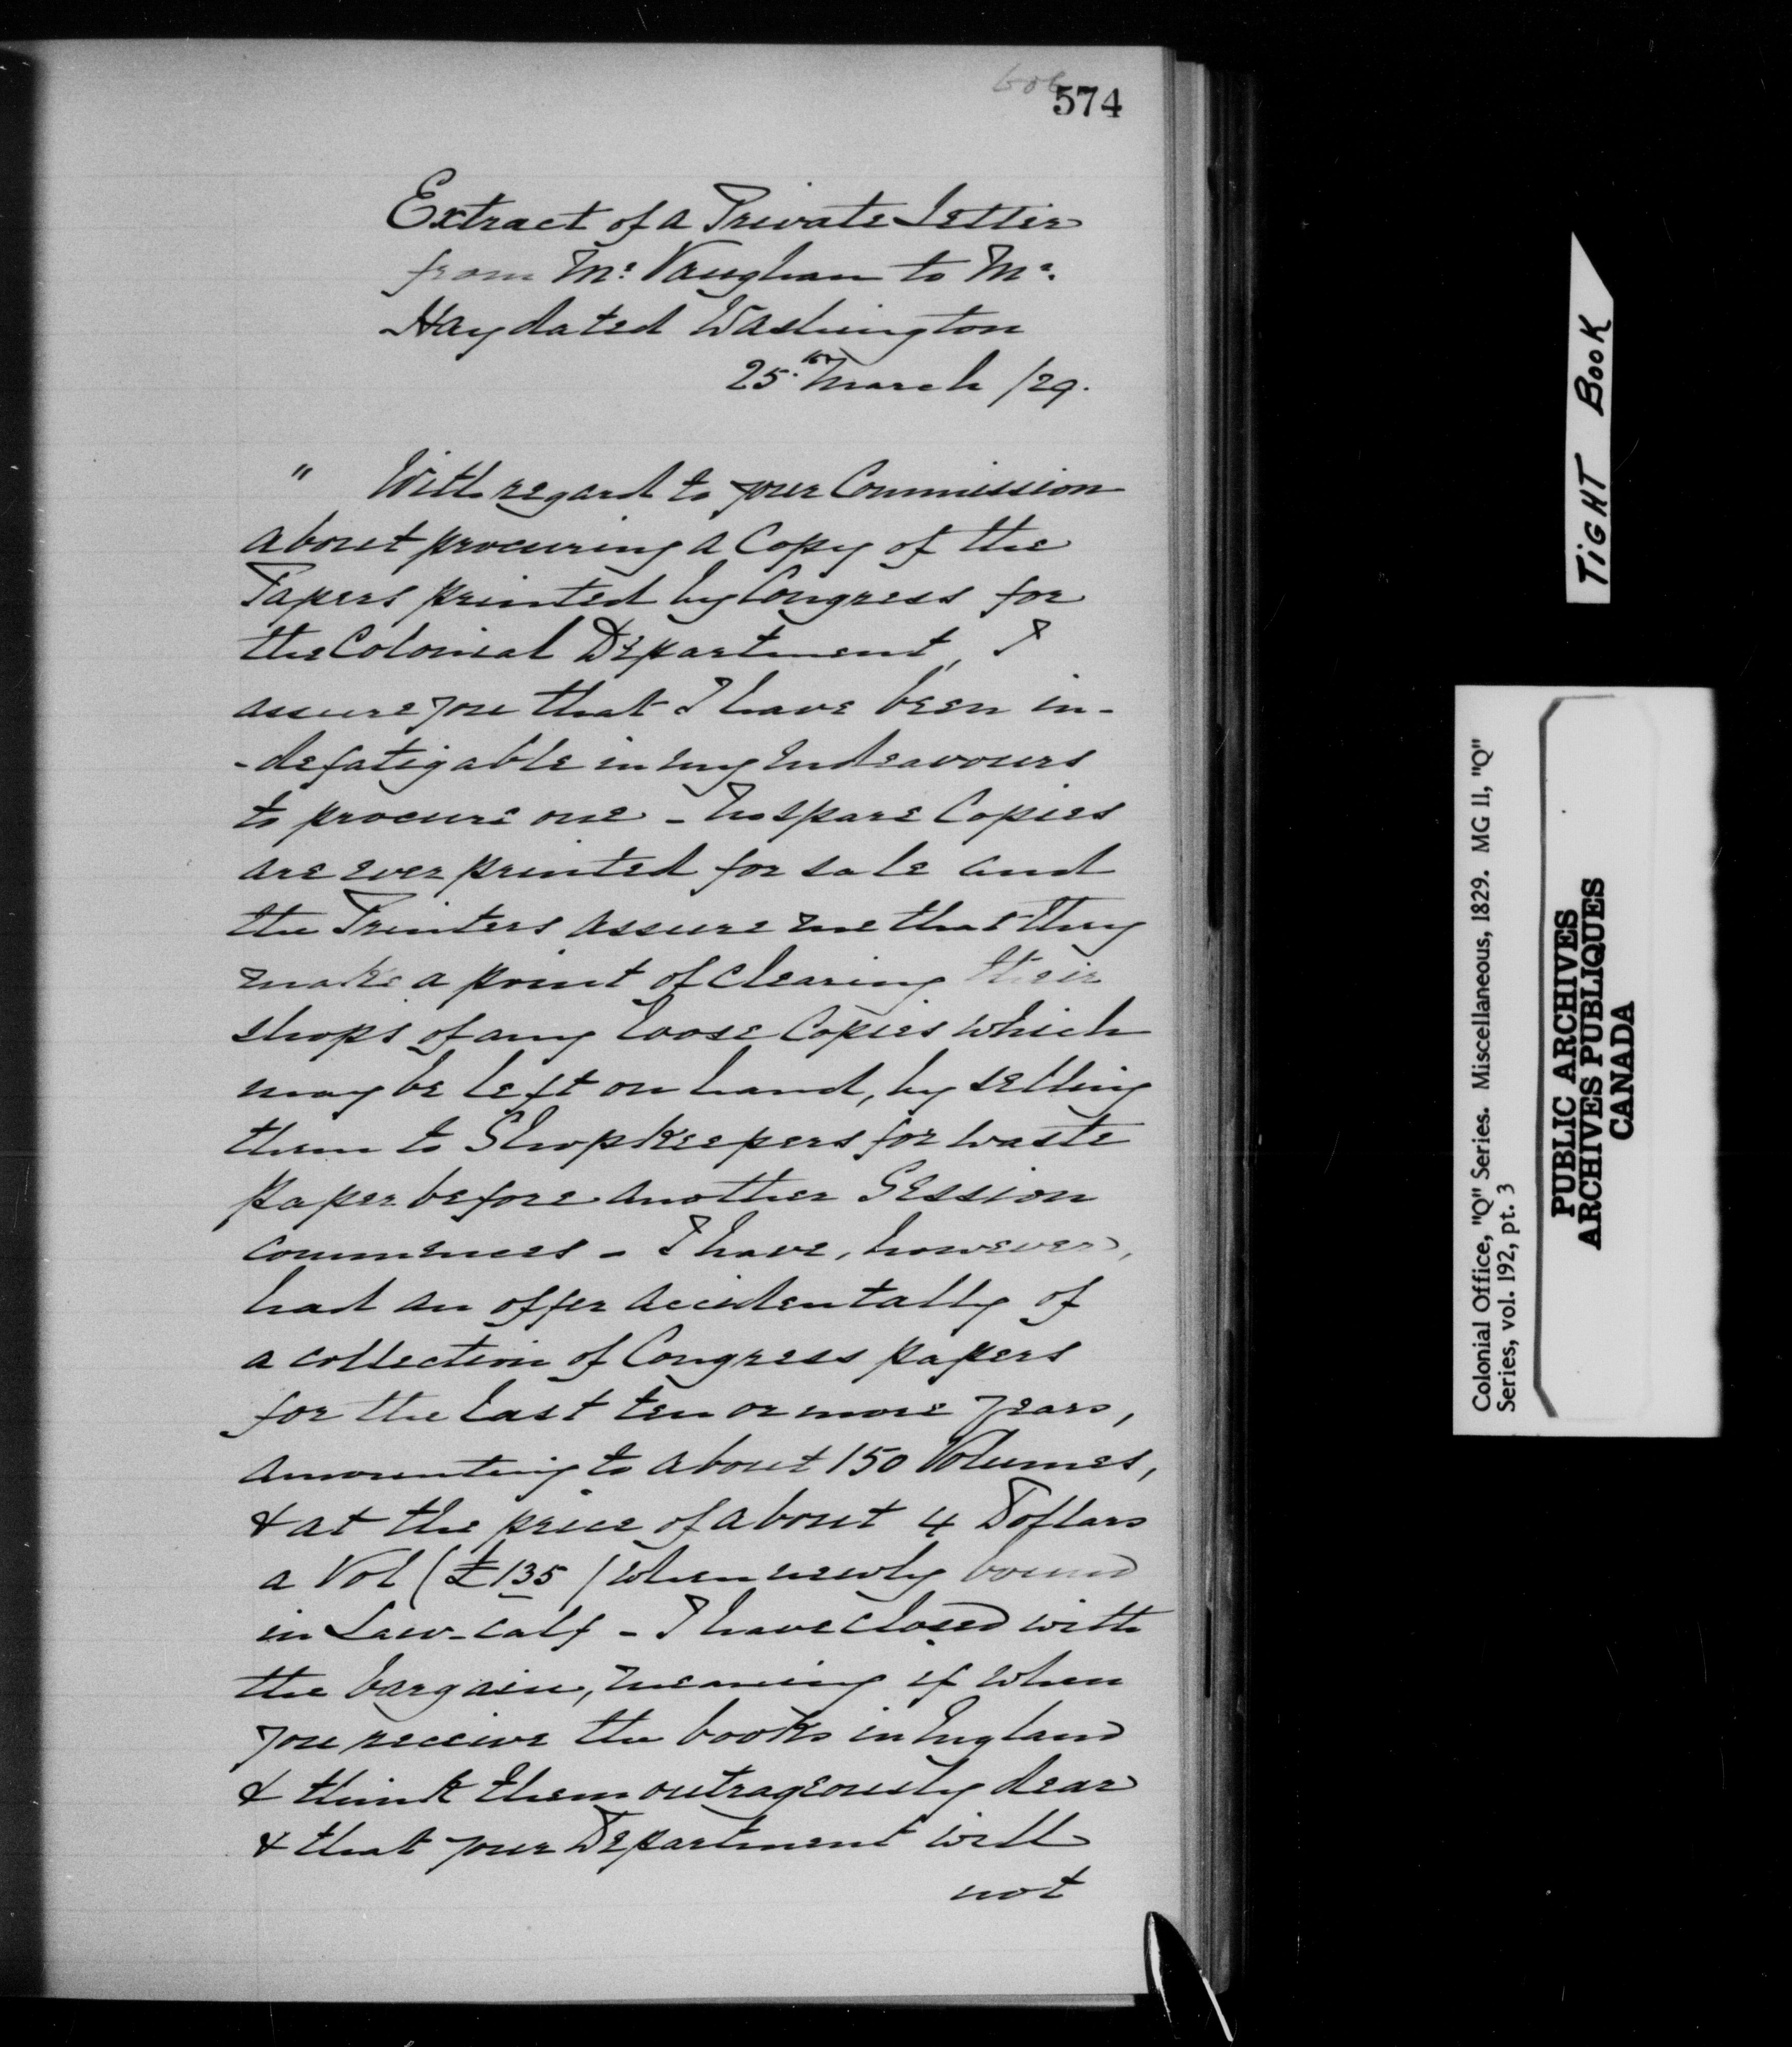 574
Extract of a Private Letter
from Mr. Vaughan to Mr.
Hay dated Washington
25.th March /29.
" With regard to your Commission
about procuring a Copy of the
Papers printed by Congress for
the Colonial Department, I
assure you that I have been in-
-defatigable in my endeavours
to procure one - No spare Copies
are ever printed for sale and
the Printers assure me that they
make a point of clearing their
shops of any loose Copies which
may be left on hand, by selling
them to Shopkeepers for waste
paper before another Session
commences - I have, however,
had an offer accidentally of
a collection of Congress papers
for the last ten or more years,
amounting to about 150 Volumes,
& at the price of about 4 Dollars
a Vol (£135) when newly bound
in Law-calf - I have closed with
the bargain, meaning if when
you receive the books in England
& think them outrageously dear
& that your Department will
not
TIGHT BOOK
Colonial Office, "Q" Series. Miscellaneous, 1829. MG 11, "Q"
Series, vol. 192, pt. 3
PUBLIC ARCHIVES
ARCHIVES PUBLIQUES
CANADA